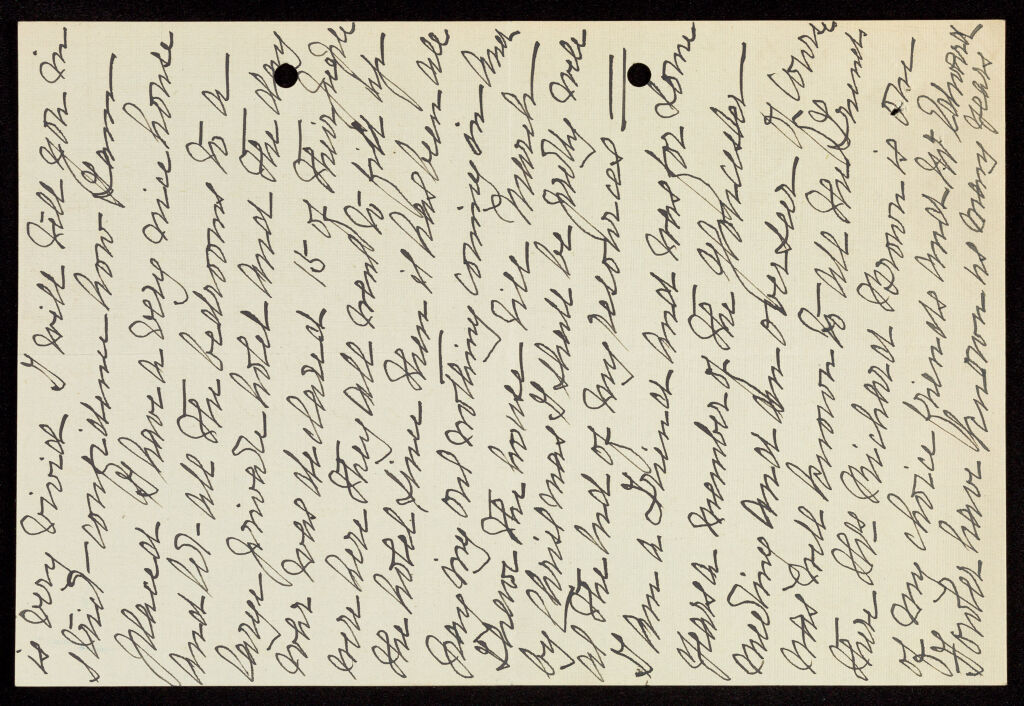 is very vivid I will tell you in
strict-confidence how I am
placed I have a very nice home
and let all the bedrooms to a
large private hotel and the day
war was declared 15 of their people
were here They all went to fill up
the hotel, since then it has been all
pay my out nothing coming in and
the house till March
by Christmas I shall be pretty well
at the end of my resources
I am a Friend and was for some
years a member of the Gloucester
meeting and an overseer
was well known to all the Friends
there The late Richard Brown is one
of my choice friends and Sgt Edward
Fowler have known us many years